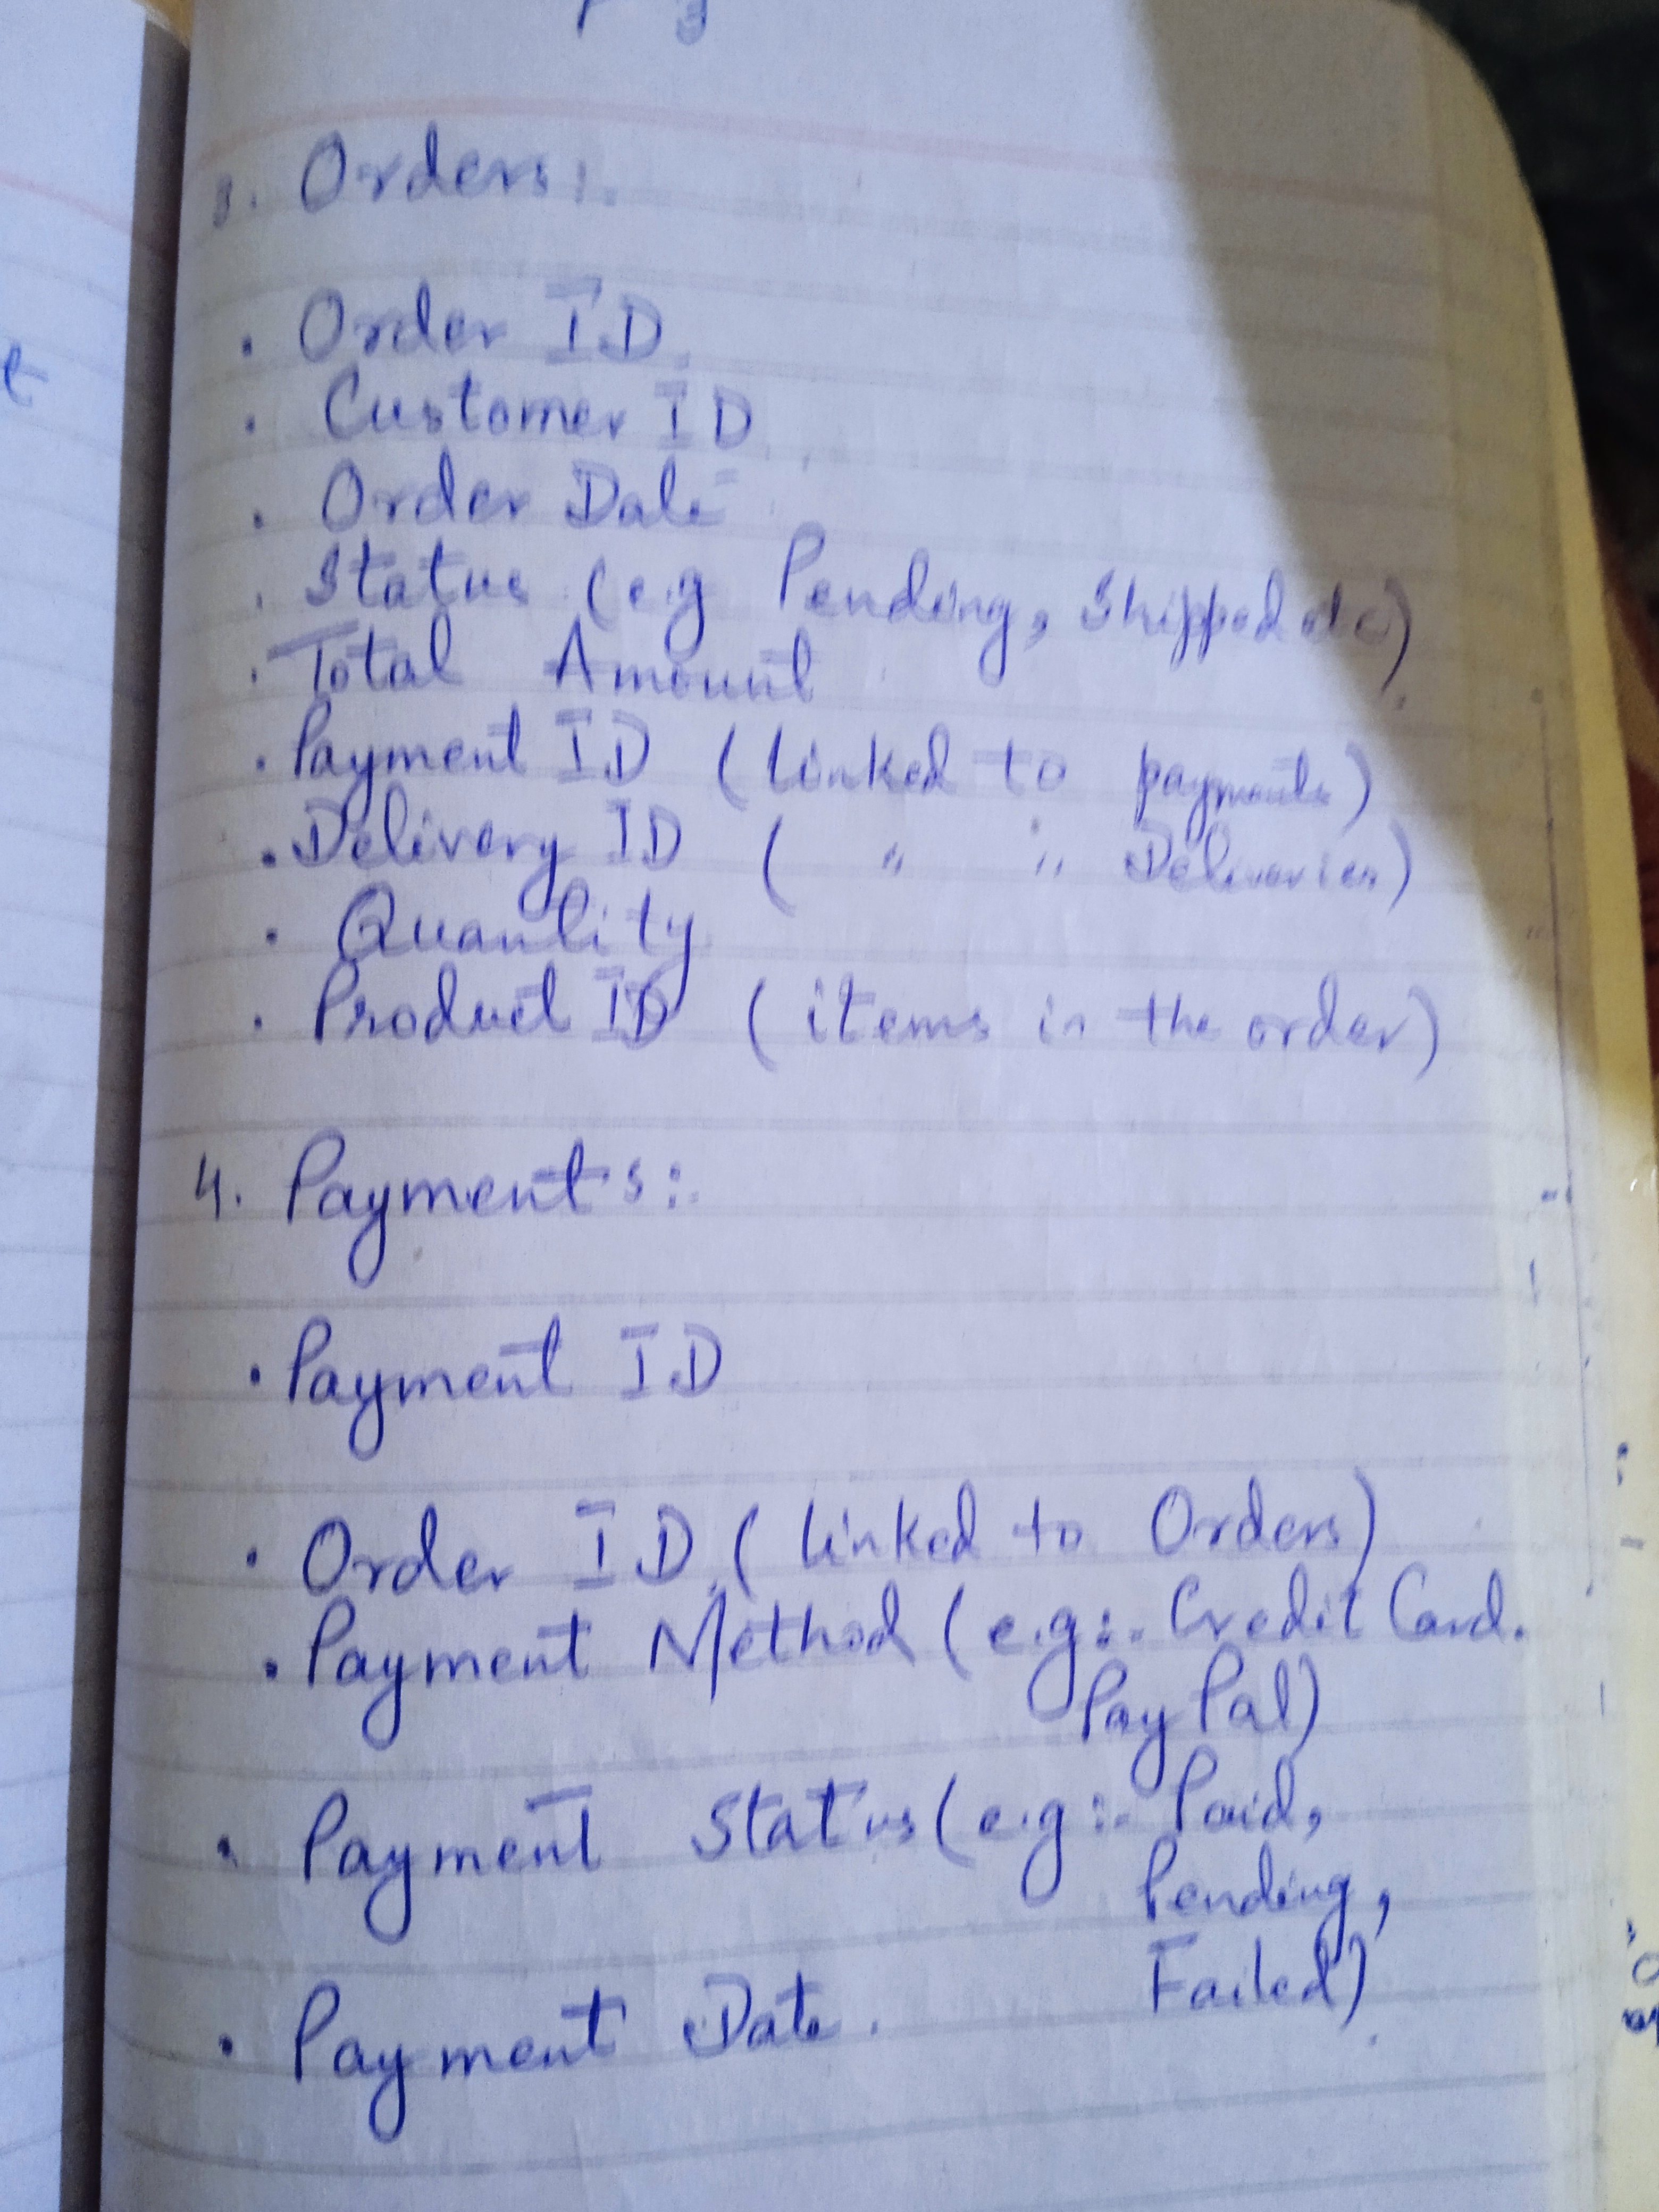 3. Orders:.
. Order ID
. Customer ID
. Order Date
. Status (e.g Pending, Shipped etc).
. Total Amount
. Payment ID (linked to payments)
. Delivery ID ( " " Deliveries)
. Quantity
. Product ID (items in the order)
4. Payments:.
. Payment ID
. Order ID (linked to Orders)
. Payment Method (e.g:. Credit Card.
PayPal)
. Payment Status (e.g:- Paid,
Pending,
Failed).
. Payment Date.